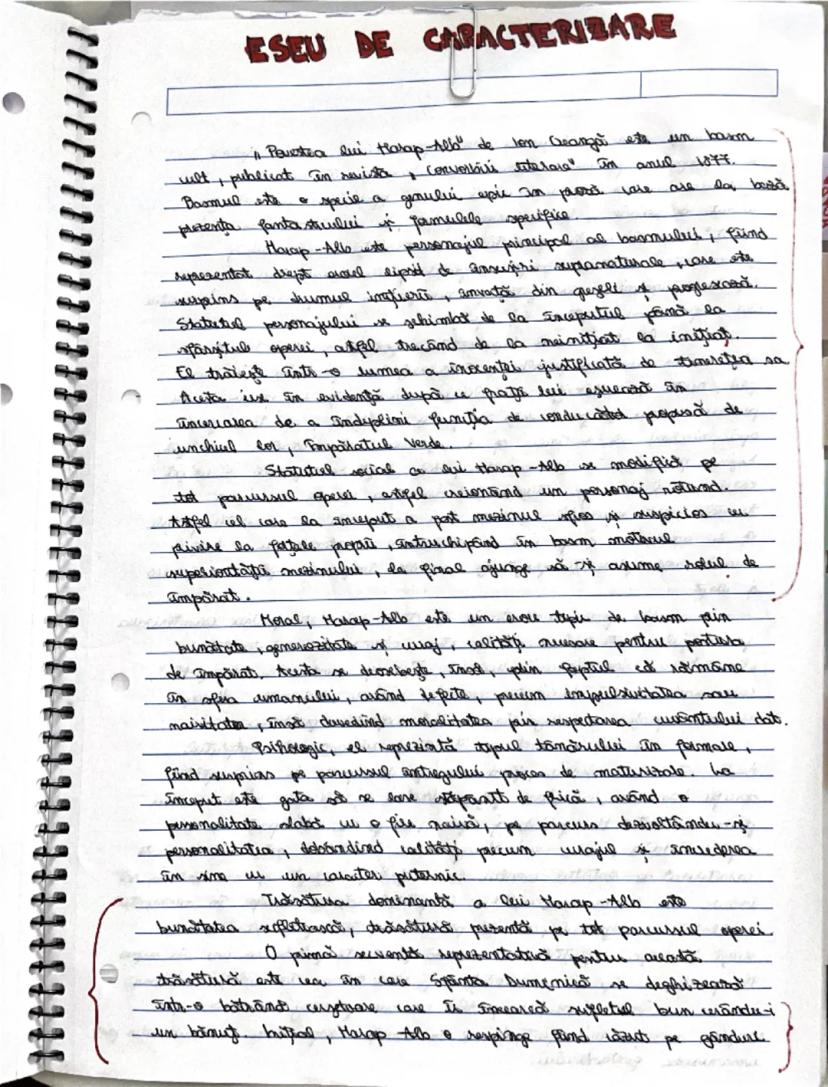 ESEU DE CARACTERIZARE
„Povestea lui Harap-Alb" de Ion Creangă este un basm
cult, publicat în revista „Convorbiri literare" în anul 1877.
Basmul este o specie a genului epic în proză care are la bază
prezența fantasticului și formulele specifice.
Harap-Alb este personajul principal al basmului, fiind
reprezentat drept eroul lipsit de însușiri supranaturale, care este
surprins pe drumul inițierii, învață din greșeli și progresează.
Statutul personajului se schimbă de la începutul până la
sfârșitul operei, astfel trecând de la neinițiat la inițiat.
El trăiește într-o lumea a inocenței justificată de tinerețea sa.
Acesta iese în evidență după ce frații lui eșuează în
încercarea de a îndeplini funcția de conducător propusă de
unchiul lor, Împăratul Verde.
Statutul social ca lui Harap-Alb se modifică pe
tot parcursul operei, astfel creionând un personaj rotund.
Astfel cel care la început a fost mezinul sfios și suspicios cu
privire la forțele proprii, întruchipând în basm motivul
superiorității mezinului, la final ajunge să-și asume rolul de
împărat.
Moral, Harap-Alb este un erou tipic de basm prin
bunătate, generozitate și curaj, calități necesare pentru postura
de împărat. Acesta se deosebește, însă, prin faptul că rămâne
în sfera umanului, având defecte, precum impulsivitatea sau
naivitatea, însă dovedind moralitatea prin respectarea cuvântului dat.
Psihologic, el reprezintă tipul tânărului în formare,
fiind surprins pe parcursul întregului proces de maturizare. La
început este gata să se lase stăpânit de frică, având o
personalitate slabă cu o fire naivă, pe parcurs dezvoltându-și
personalitatea, dobândind calități precum curajul și încrederea
în sine cu un caracter puternic.
Trăsătura dominantă a lui Harap-Alb este
bunătatea sufletească, trăsătură prezentă pe tot parcursul operei.
O primă secvență reprezentativă pentru această
trăsătură este cea în care Sfânta Duminică se deghizează
într-o bătrână cerșetoare care îi încearcă sufletul bun cerându-i
un bănuț. Inițial, Harap-Alb o respinge fiind căzut pe gânduri